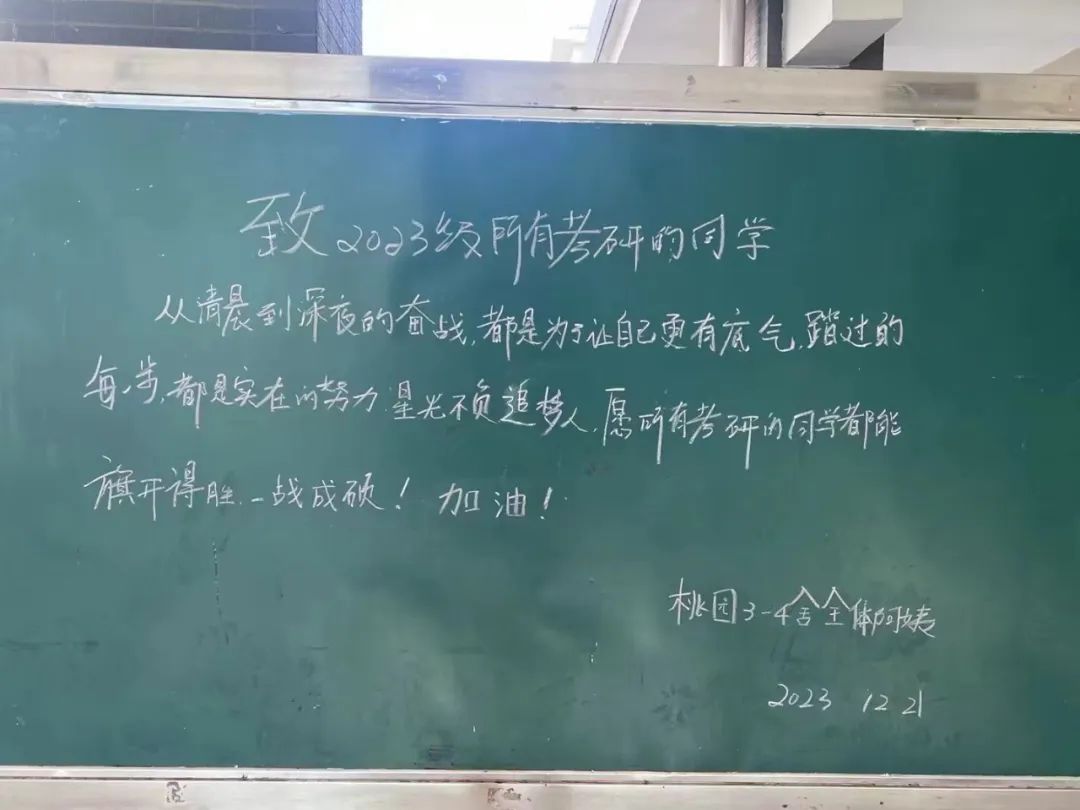 致2023级所有考研的同学
从清晨到深夜的奋战,都是为了让自己更有底气,踏过的
每一步,都是实在的努力.星光不负追梦人,愿所有考研的同学都能
旗开得胜.一战成硕! 加油!
桃园3-4舍全体阿姨
2023 12 21